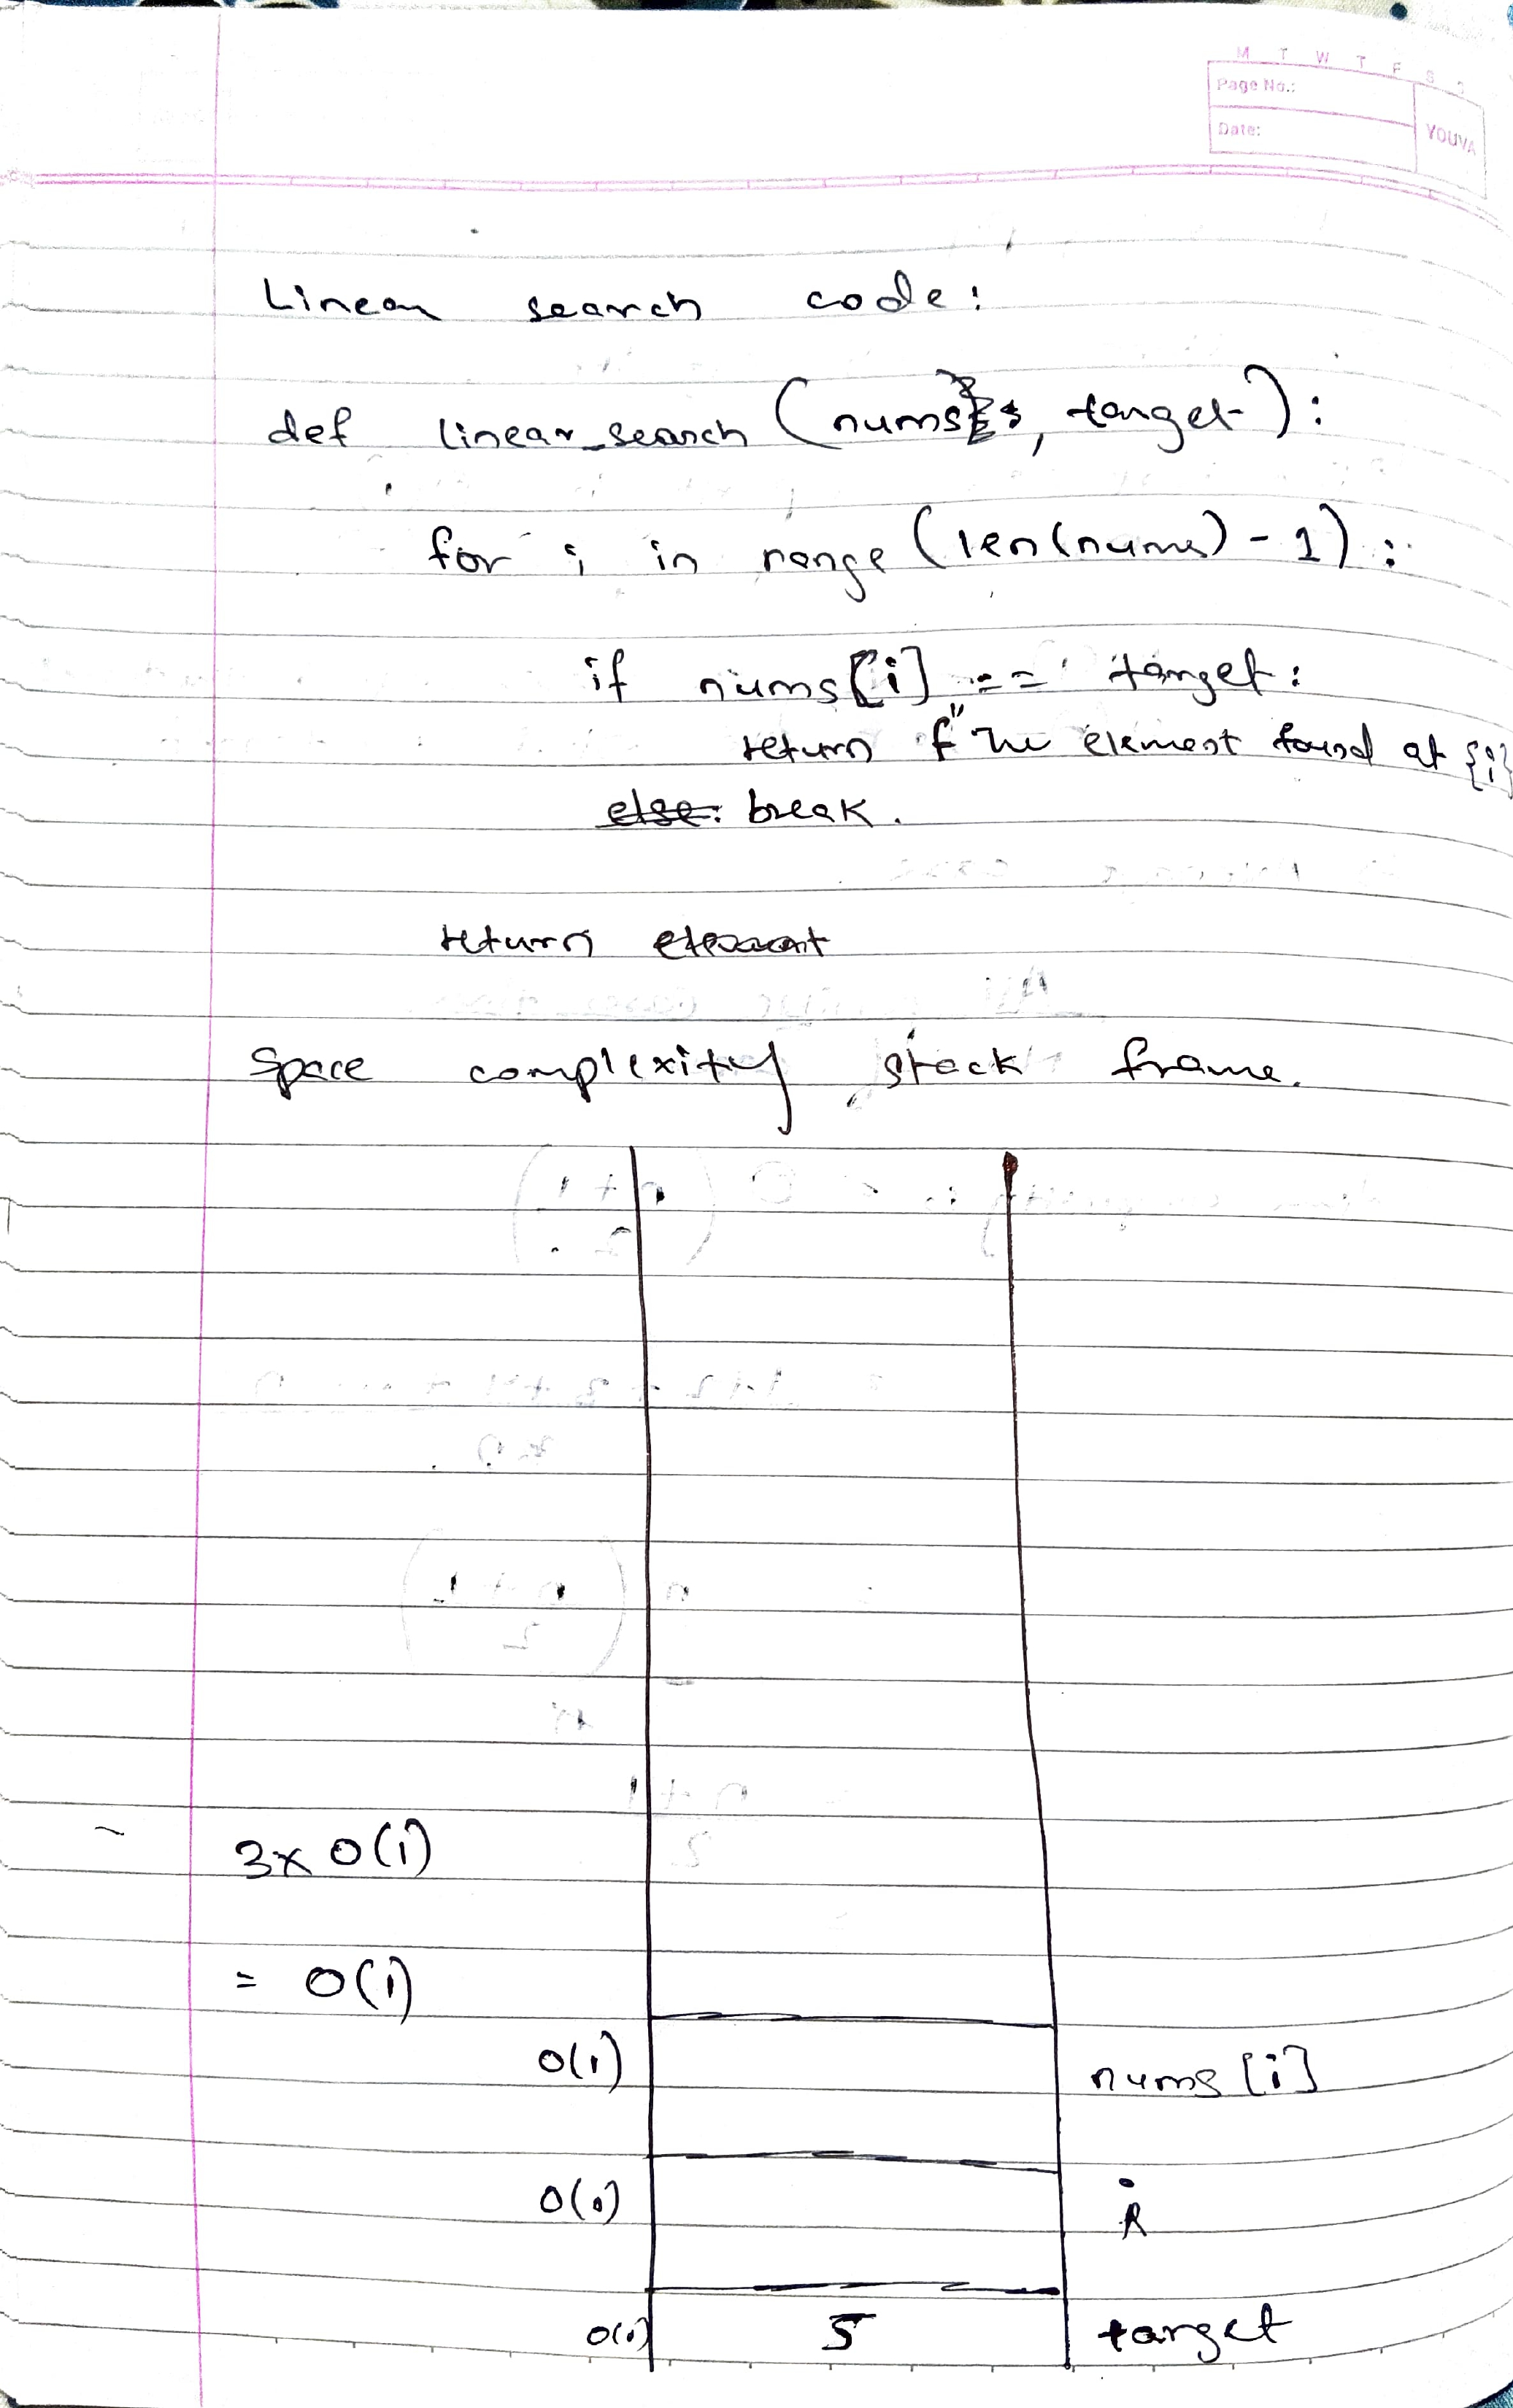 M T W T F S S
Page No.:
Date:
YOUVA
Linear search code:
def linear_search (nums, target):
for i in range (len(nums) - 1):
if nums[i] == target:
return f"The element found at {i}
else: break.
return element
Space complexity stack frame.
3x O(1)
= O(1)
O(1) nums[i]
O(1) i
O(1) 5 target